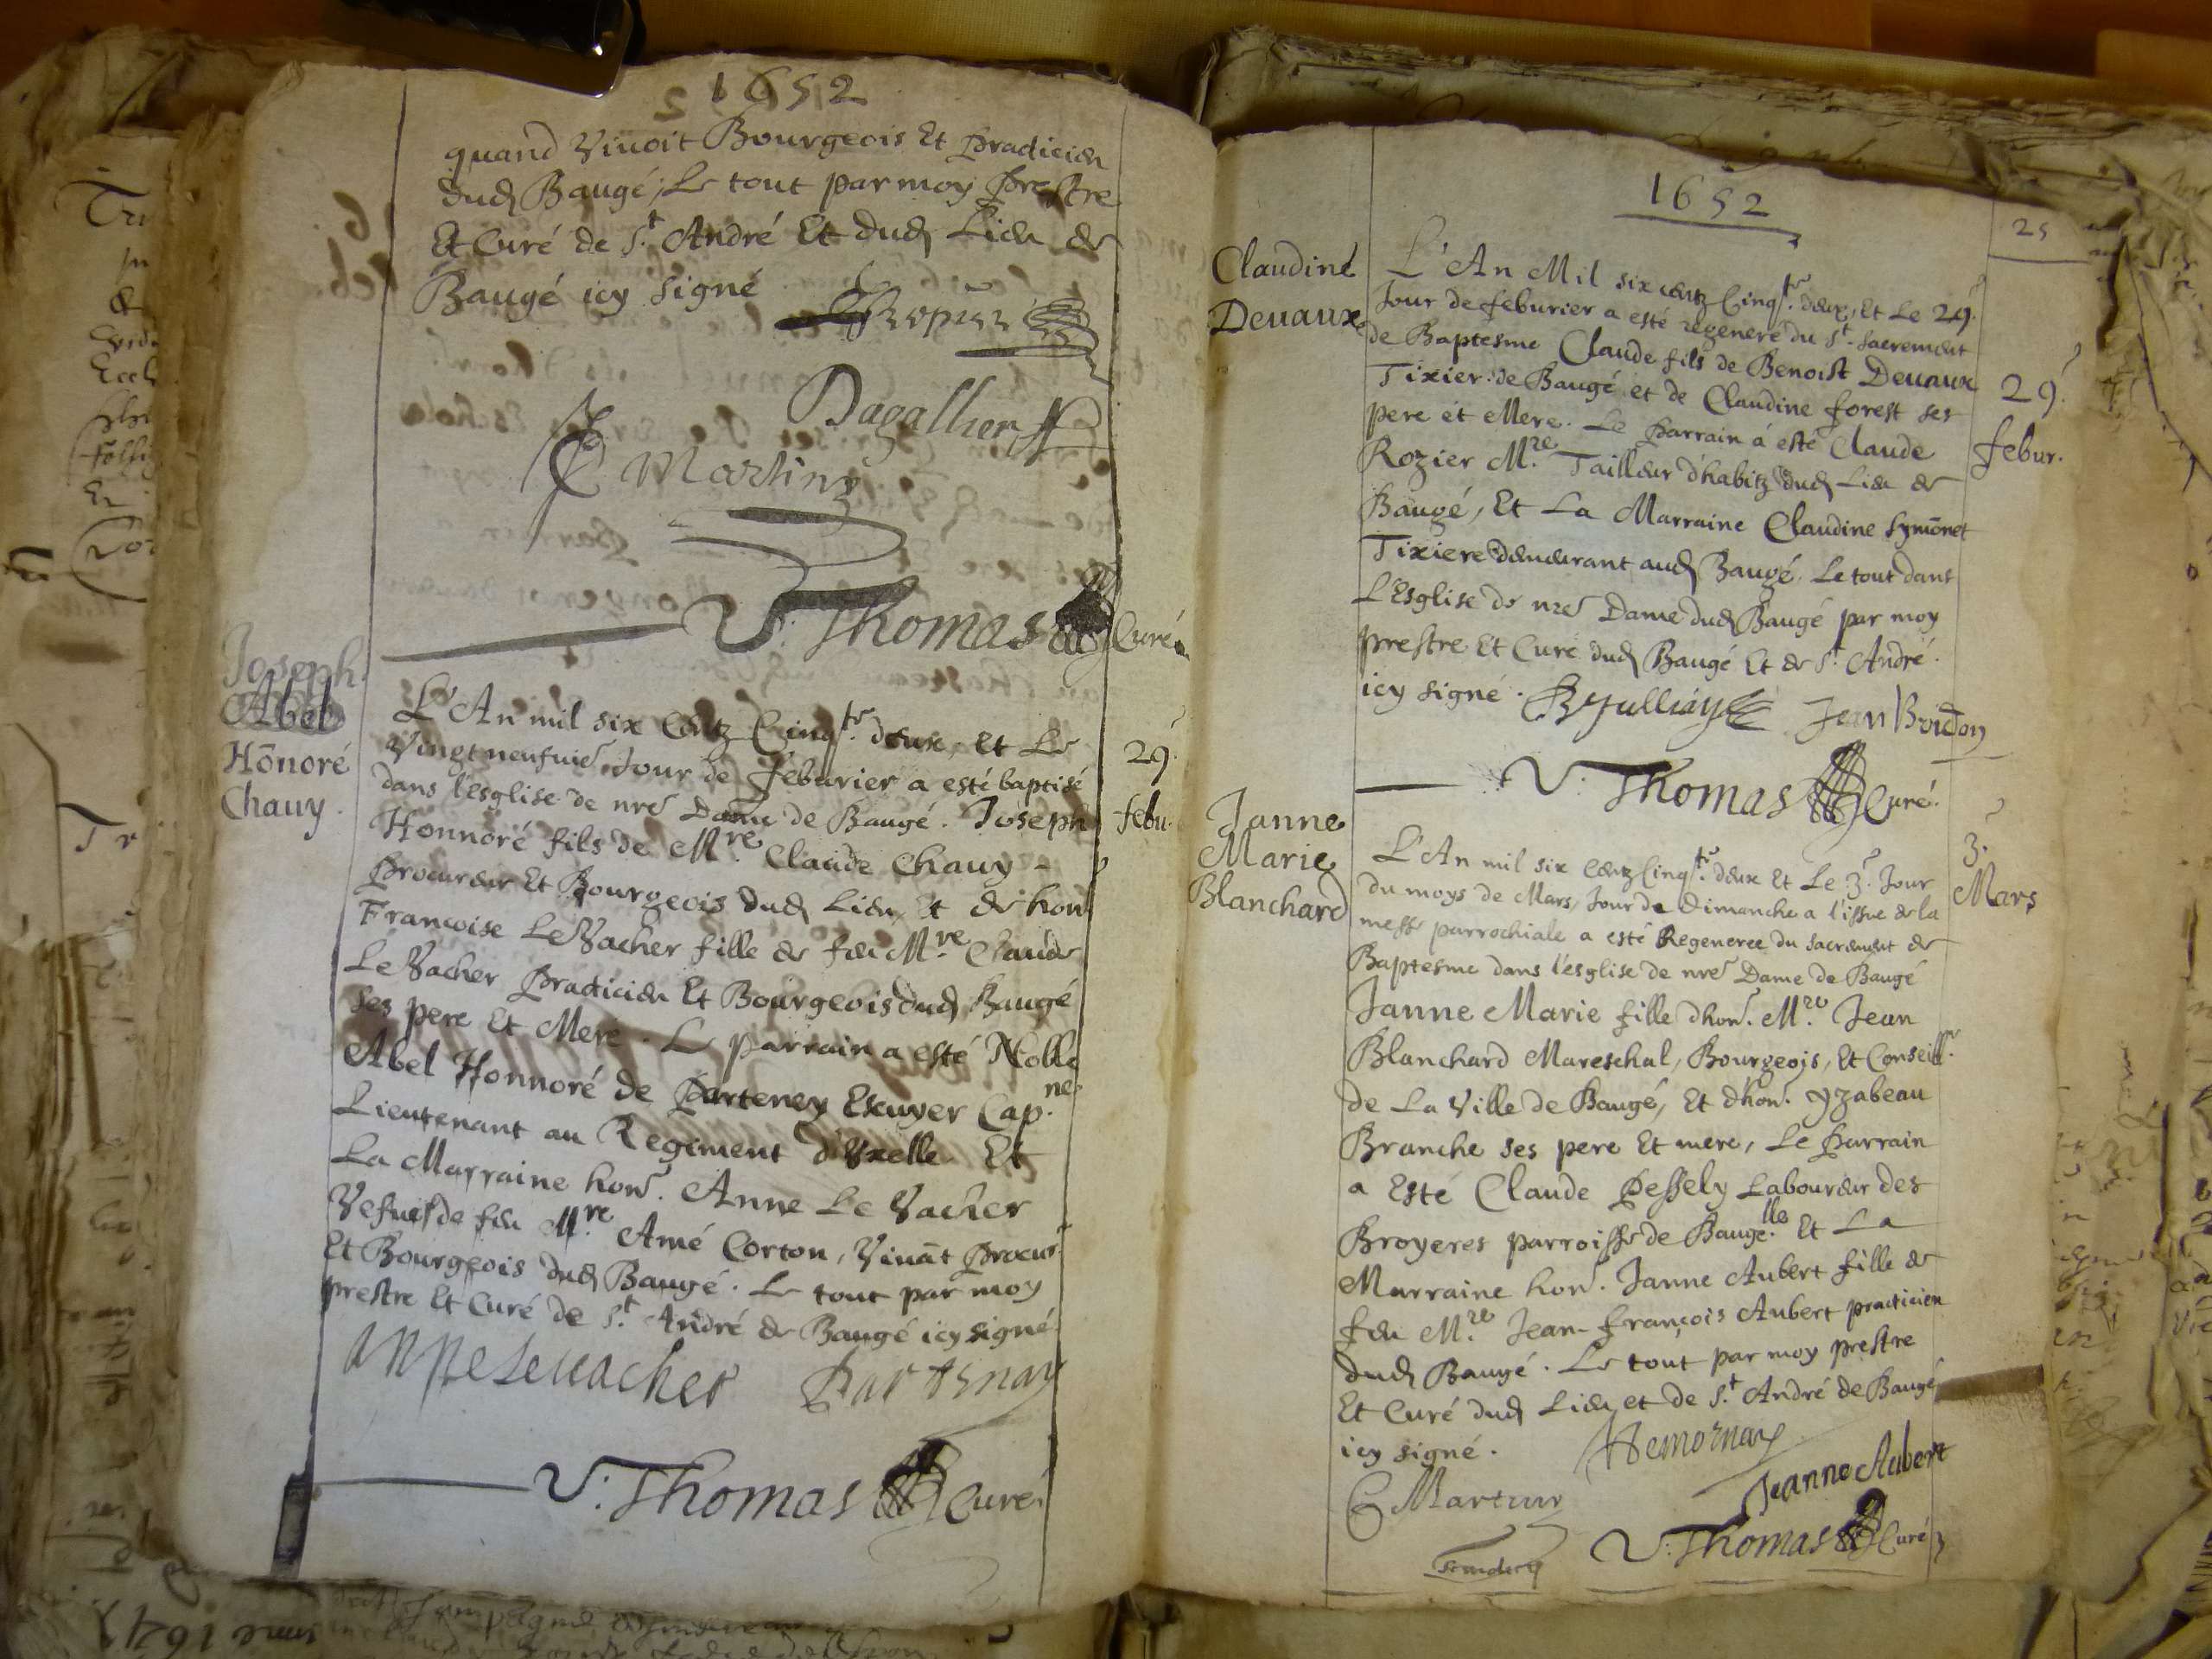 1652
quand Viuoit Bourgeois Et Pradicien
dud Baugé, Le tout par moy Prestre
Et Curé de S.t André Et dud Lieu de
Baugé icy signé
Dagallier
Martin
V. Thomas Curé
Joseph
Abel
Honoré
Chauy.
L'An mil six Centz Cinq.te deux, Et Le
Vingt neufuie Jour de feburier a esté baptisé
dans l'esglise de nre Dame de Baugé. Joseph
Honnoré fils de M.re Claude Chauy -
Procureur Et Bourgeois dud Lieu, Et de hon.
Francoise Le Vacher fille de feu M.re Claude
Le Vacher Pradicien Et Bourgeois dud Baugé
ses pere Et Mere. Le parrain a esté Noble
Abel Honnoré de Parteney Escuyer Cap.ne
Lieutenant au Regiment d'Vxelle. Et
La Marraine hon. Anne Le Vacher
Vefue de feu M.re Amé Corton, Viuāt Procur.
Et Bourgeois dud Baugé. Le tout par moy
prestre Et Curé de S.t André de Baugé icy signé.
29.
febu.
Anne Leuacher Partenay
V. Thomas Curé
1652
25
Claudine
Deuaux
L'An Mil six centz Cinq.te deux, Et Le 29.
Jour de feburier a esté regeneré du S.t Sacrement
de Baptesme Claude fils de Benoist Deuaux
Tixier de Baugé et de Claudine forest ses
pere et Mere. Le Parrain a esté Claude
Rozier M.re Tailleur d'habitz dud Lieu de
Baugé, Et La Marraine Claudine Symōnet
Tixiere demeurant aud Baugé. Le tout dans
L'Esglise de nre Dame dud Baugé par moy
prestre Et Curé dud Baugé Et de S.t André.
icy signé.
29.
febur.
Jean
V. Thomas Curé.
Janne
Marie
Blanchard
L'An mil six Centz Cinq.te deux Et Le 3. Jour
du moys de Mars, Jour de Dimanche a l'issue de la
messe parrochiale a esté Regeneree du Sacrement de
Baptesme dans l'esglise de nre Dame de Baugé
Janne Marie fille d'hon. M.re Jean
Blanchard Mareschal, Bourgeois, Et Conseill.r
de La Ville de Baugé, Et d'hon. yzabeau
Branche ses pere Et mere, Le Parrain
a Esté Claude Pessely Laboureur des
Broyeres parroisse de Baugé.lle Et La
Marraine hon. Janne Aubert fille de
feu M.re Jean-françois Aubert practicien
dud Baugé. Le tout par moy prestre
Et Curé dud Lieu et de S.t André de Baugé
icy signé.
3.
Mars
Jeanne Aubert
V. Thomas Curé